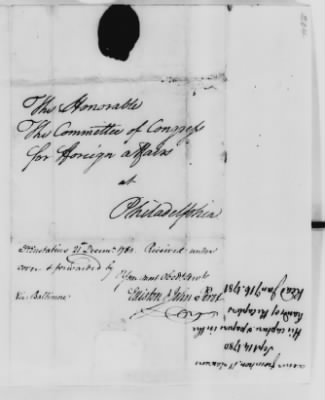 The Honorable
The Committee of Congress
for Foreign affairs
at
Philadelphia
St Eustatius 21 Decemr 1780. Received under
cover & forwarded by
Your most Obedt Servts
& John
Via Baltimore
Sept 14, 1780
His capture & papers in the
hands of
Read Jany 16. 1781